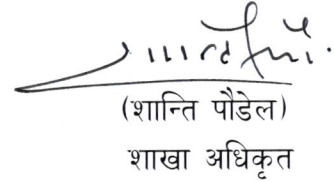 (शान्ति पौडेल)
शाखा अधिकृत